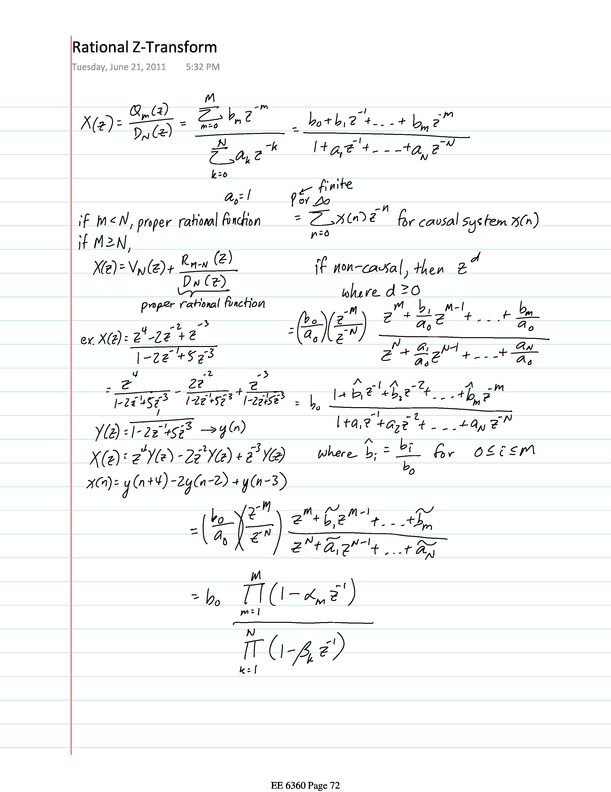 Rational Z-Transform
Tuesday, June 21, 2011 5:32 PM
X(z) = Q_m(z) / D_N(z) = ∑_{m=0}^{M} b_m z^{-m} / ∑_{k=0}^{N} a_k z^{-k} = (b_0 + b_1 z^{-1} + ... + b_m z^{-M}) / (1 + a_1 z^{-1} + ... + a_N z^{-N})
a_0 = 1
finite
P or ∞
if M < N, proper rational function
= ∑_{n=0} x(n) z^{-n} for causal system x(n)
if M ≥ N,
X(z) = V_N(z) + R_{M-N}(z) / D_N(z)
proper rational function
if non-causal, then z^d
where d ≥ 0
ex. X(z) = (z^4 - 2z^{-2} + z^{-3}) / (1 - 2z^{-1} + 5z^{-3})
= (b_0/a_0)(z^{-M}/z^{-N}) (z^M + b_1/a_0 z^{M-1} + ... + b_m/a_0) / (z^N + a_1/a_0 z^{N-1} + ... + a_N/a_0)
= z^4 / (1 - 2z^{-1} + 5z^{-3}) - 2z^{-2} / (1 - 2z^{-1} + 5z^{-3}) + z^{-3} / (1 - 2z^{-1} + 5z^{-3})
= b_0 (1 + b̂_1 z^{-1} + b̂_2 z^{-2} + ... + b̂_m z^{-M}) / (1 + a_1 z^{-1} + a_2 z^{-2} + ... + a_N z^{-N})
Y(z) = 1 / (1 - 2z^{-1} + 5z^{-3}) → y(n)
X(z) = z^4 Y(z) - 2z^{-2} Y(z) + z^{-3} Y(z)
where b̂_i = b_i / b_0 for 0 ≤ i ≤ M
x(n) = y(n+4) - 2y(n-2) + y(n-3)
= (b_0/a_0)(z^{-M}/z^{-N}) (z^M + b̃_1 z^{M-1} + ... + b̃_m) / (z^N + ã_1 z^{N-1} + ... + ã_N)
= b_0 ∏_{m=1}^{M} (1 - α_m z^{-1}) / ∏_{k=1}^{N} (1 - β_k z^{-1})
EE 6360 Page 72